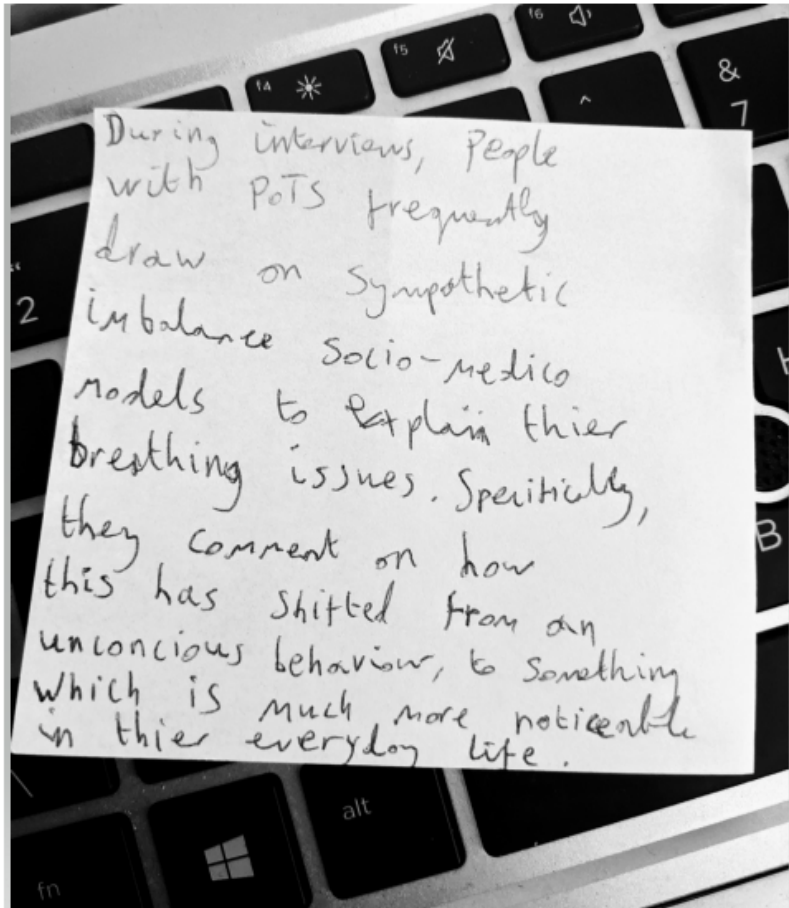 f4
f5
f6
&
7
^
2
During interviews, People
with PoTS frequently
draw on Sympathetic
imbalance Socio-medico
models to explain thier
breathing issues. Specifically,
they comment on how
this has shifted from an
unconcious behaviour, to something
which is much more noticeable
in thier everyday life.
B
alt
fn
\